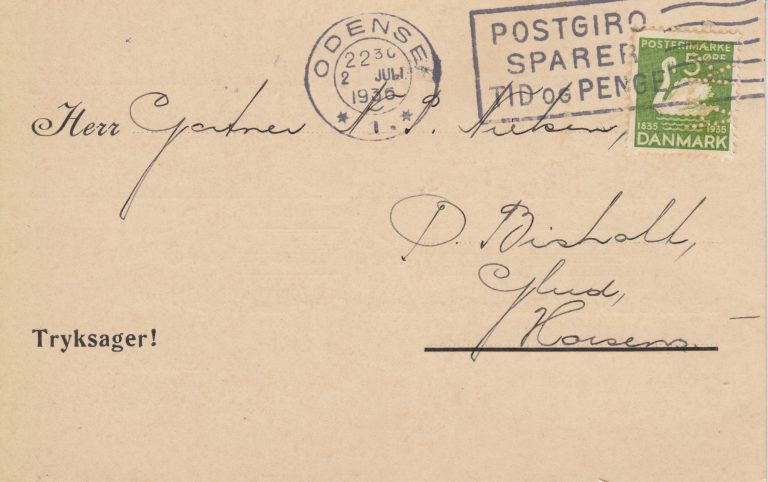 ODENSE
2230
2 JULI
1935
* 1. *
POSTGIRO
SPARER
TID OG PENGE
POSTFRIMÆRKE
5 ØRE
1835 1935
DANMARK
Herr Gartner P. Nielsen,
Bisholt,
Glud,
Horsens.
Tryksager!